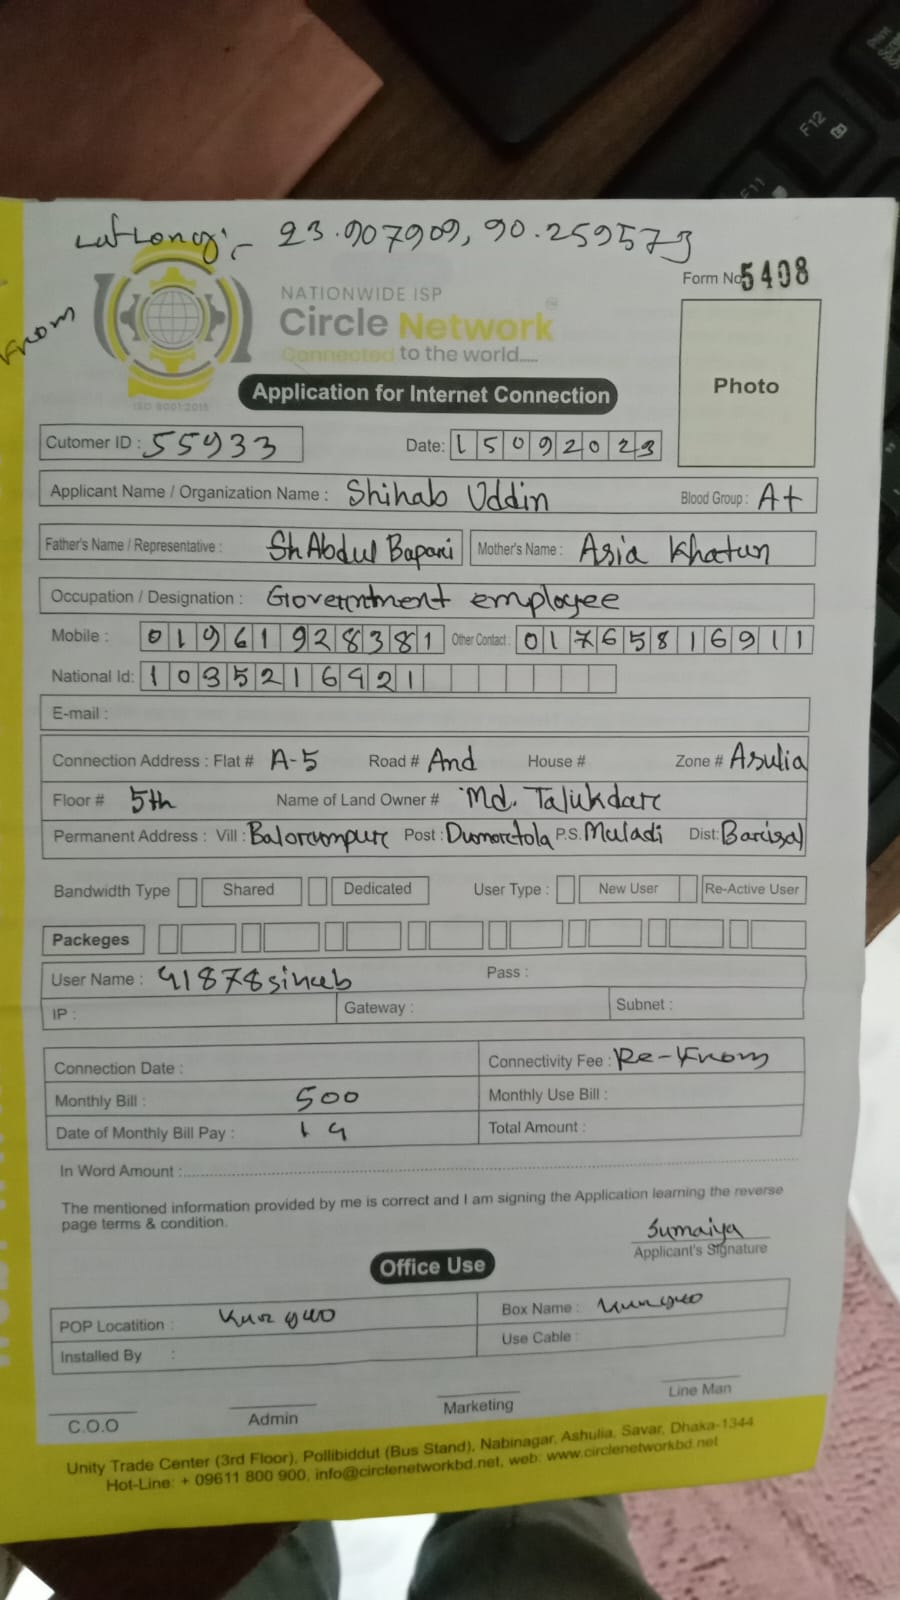 LatLong:- 23.907909, 90.259573
Form No 5408
From
NATIONWIDE ISP
Circle Network
Connected to the world.....
ISO 9001:2015
Application for Internet Connection
Photo
Cutomer ID : 55933
Date: 15092023
Applicant Name / Organization Name : Shihab Uddin Blood Group : A+
Father's Name / Representative : Sh Abdul Bapari Mother's Name : Asia Khatun
Occupation / Designation : Government employee
Mobile : 01961928381 Other Contact : 01765816911
National Id: 1035216921
E-mail :
Connection Address : Flat # A-5 Road # And House # Zone # Asulia
Floor # 5th Name of Land Owner # Md. Talukdar
Permanent Address : Vill : Balorampur Post : Dumoretola P.S. Muladi Dist: Barisal
Bandwidth Type Shared Dedicated User Type : New User Re-Active User
Packeges
User Name : 41878sihab Pass :
IP : Gateway : Subnet :
Connection Date : Connectivity Fee : Re-From
Monthly Bill : 500 Monthly Use Bill :
Date of Monthly Bill Pay : 19 Total Amount :
In Word Amount :
The mentioned information provided by me is correct and I am signing the Application learning the reverse
page terms & condition.
Sumaiya
Applicant's Signature
Office Use
POP Locatition :
Box Name :
Installed By :
Use Cable :
C.O.O Admin Marketing Line Man
Unity Trade Center (3rd Floor), Pollibiddut (Bus Stand), Nabinagar, Ashulia, Savar, Dhaka-1344
Hot-Line: + 09611 800 900, info@circlenetworkbd.net, web: www.circlenetworkbd.net
F12
F11